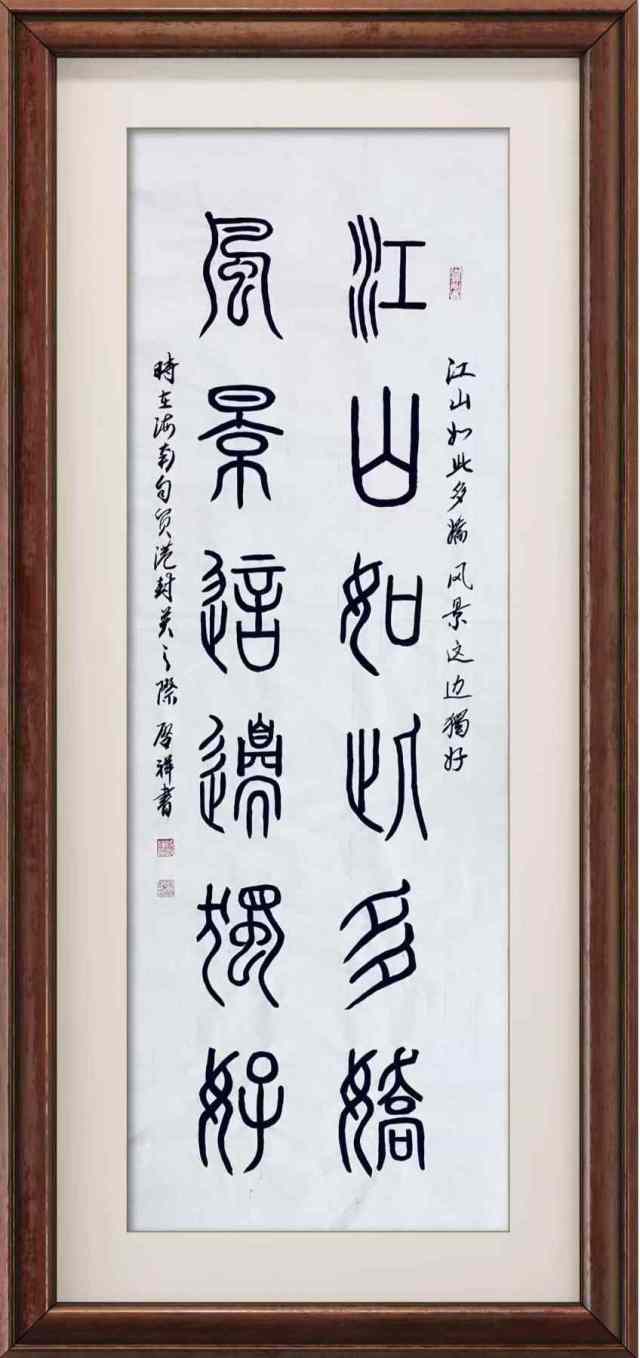 江山如此多嬌风景这边獨好
江山如此多嬌
風景這邊獨好
時在海南自贸港封关之際啓祥書